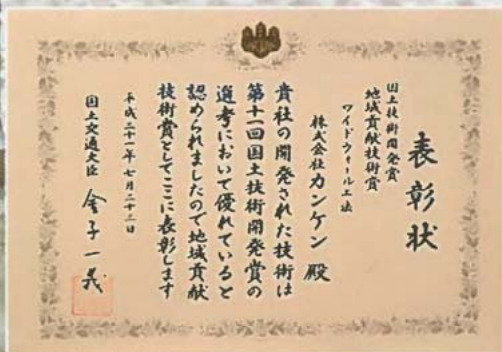 表彰状
国土技術開発賞
地域貢献技術賞
ワイドウォール工法
株式会社カンケン 殿
貴社の開発された技術は
第十一回国土技術開発賞の
選考において優れていると
認められましたので地域貢献
技術賞としてここに表彰します
平成二十一年七月二十三日
国土交通大臣 金子一義